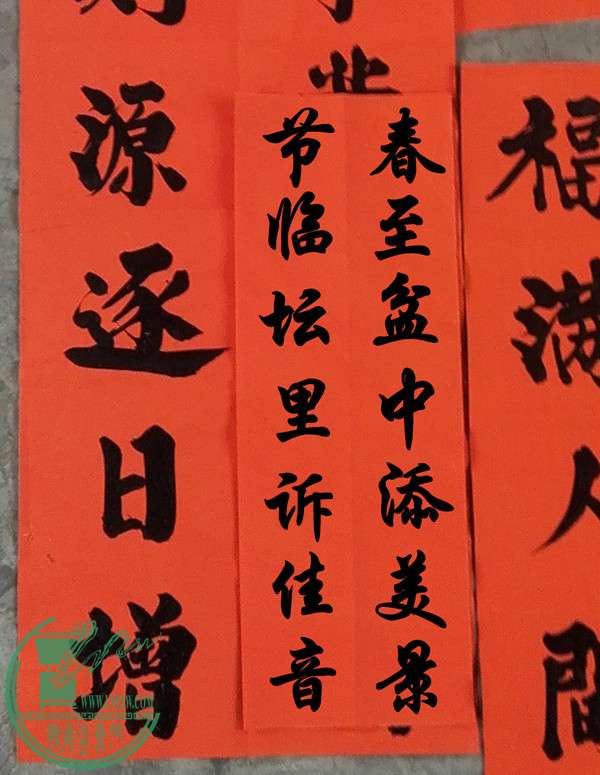 春至盆中添美景
节临坛里诉佳音
福满人间
源逐日增
WWW.LYLJW.COM